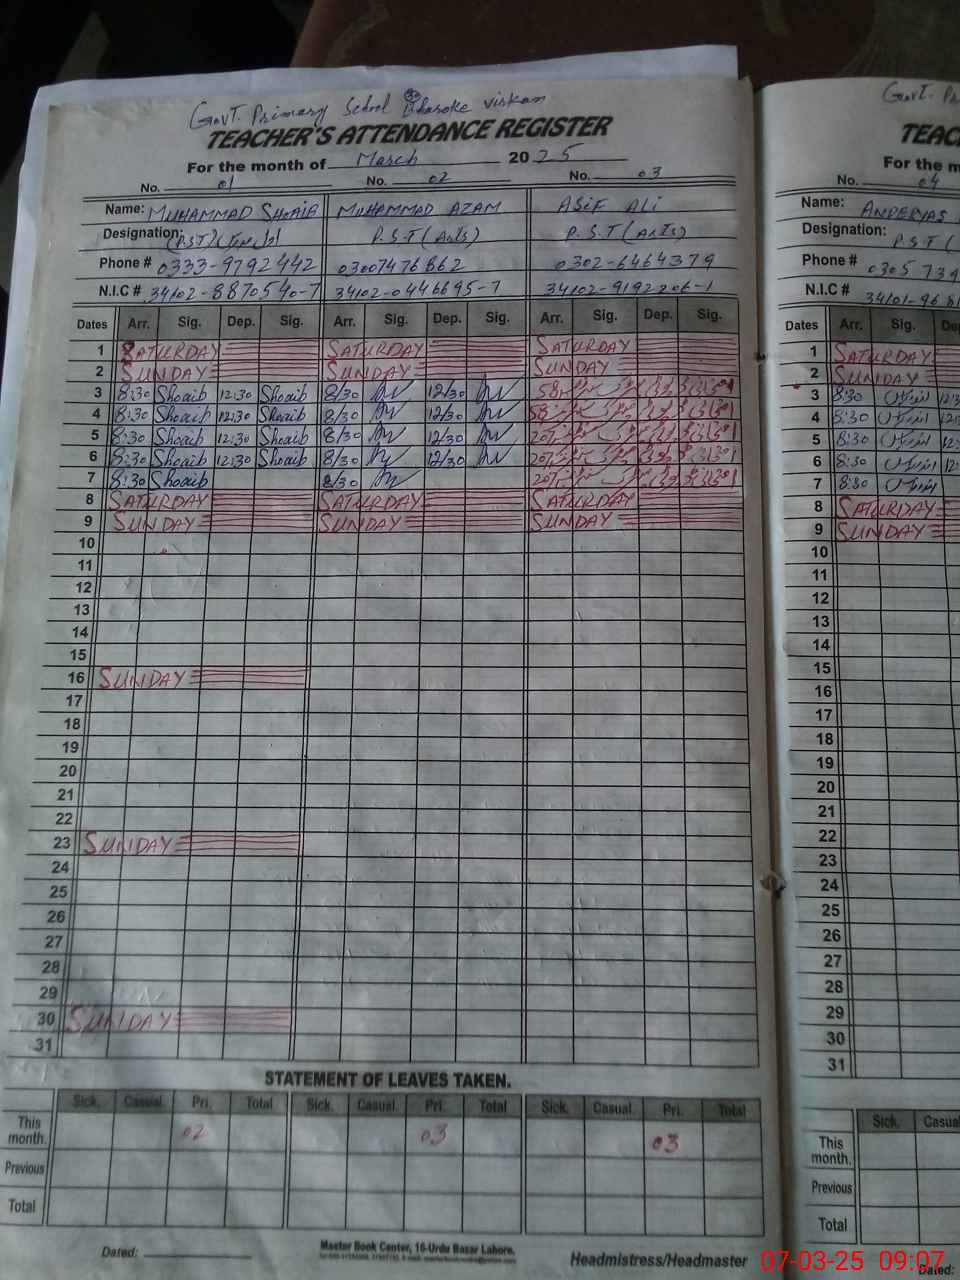 Govt. Primary School Dhasoke Viskan
TEACHER'S ATTENDANCE REGISTER
For the month of March 2025
No. 01 No. 02 No. 03
Name: MUHAMMAD SHOAIB MUHAMMAD AZAM ASIF ALI
Designation: (P.S.T) P.S.T (Arts) P.S.T (Arts)
Phone # 0333-9792442 03007476862 0302-6464379
N.I.C # 34102-8870540-7 34102-0446695-7 34102-9192206-1
Dates Arr. Sig. Dep. Sig. Arr. Sig. Dep. Sig. Arr. Sig. Dep. Sig.
1 SATURDAY SATURDAY SATURDAY
2 SUNDAY SUNDAY SUNDAY
3 8:30 Shoaib 12:30 Shoaib 8/30 12/30
4 8:30 Shoaib 12:30 Shoaib 8/30 12/30
5 8:30 Shoaib 12:30 Shoaib 8/30 12/30
6 8:30 Shoaib 12:30 Shoaib 8/30 12/30
7 8:30 Shoaib 8/30
8 SATURDAY SATURDAY SATURDAY
9 SUNDAY SUNDAY SUNDAY
10
11
12
13
14
15
16 SUNDAY
17
18
19
20
21
22
23 SUNDAY
24
25
26
27
28
29
30 SUNDAY
31
STATEMENT OF LEAVES TAKEN.
Sick. Casual. Pri. Total Sick. Casual. Pri. Total Sick. Casual. Pri. Total
This month. 02 03 03
Previous
Total
Dated:
Master Book Center, 16-Urdu Bazar Lahore.
Headmistress/Headmaster
Govt. Pr
TEAC
For the m
No. 04
Name: ANDERYAS
Designation: P.S.T
Phone # 0305 739
N.I.C # 34101-968
Dates Arr. Sig. De
1 SATURDAY
2 SUNDAY
3 8:30
4 8:30
5 8:30
6 8:30
7 8:30
8 SATURDAY
9 SUNDAY
10
11
12
13
14
15
16
17
18
19
20
21
22
23
24
25
26
27
28
29
30
31
Sick. Casual
This month.
Previous
Total
Dated:
07-03-25 09:07